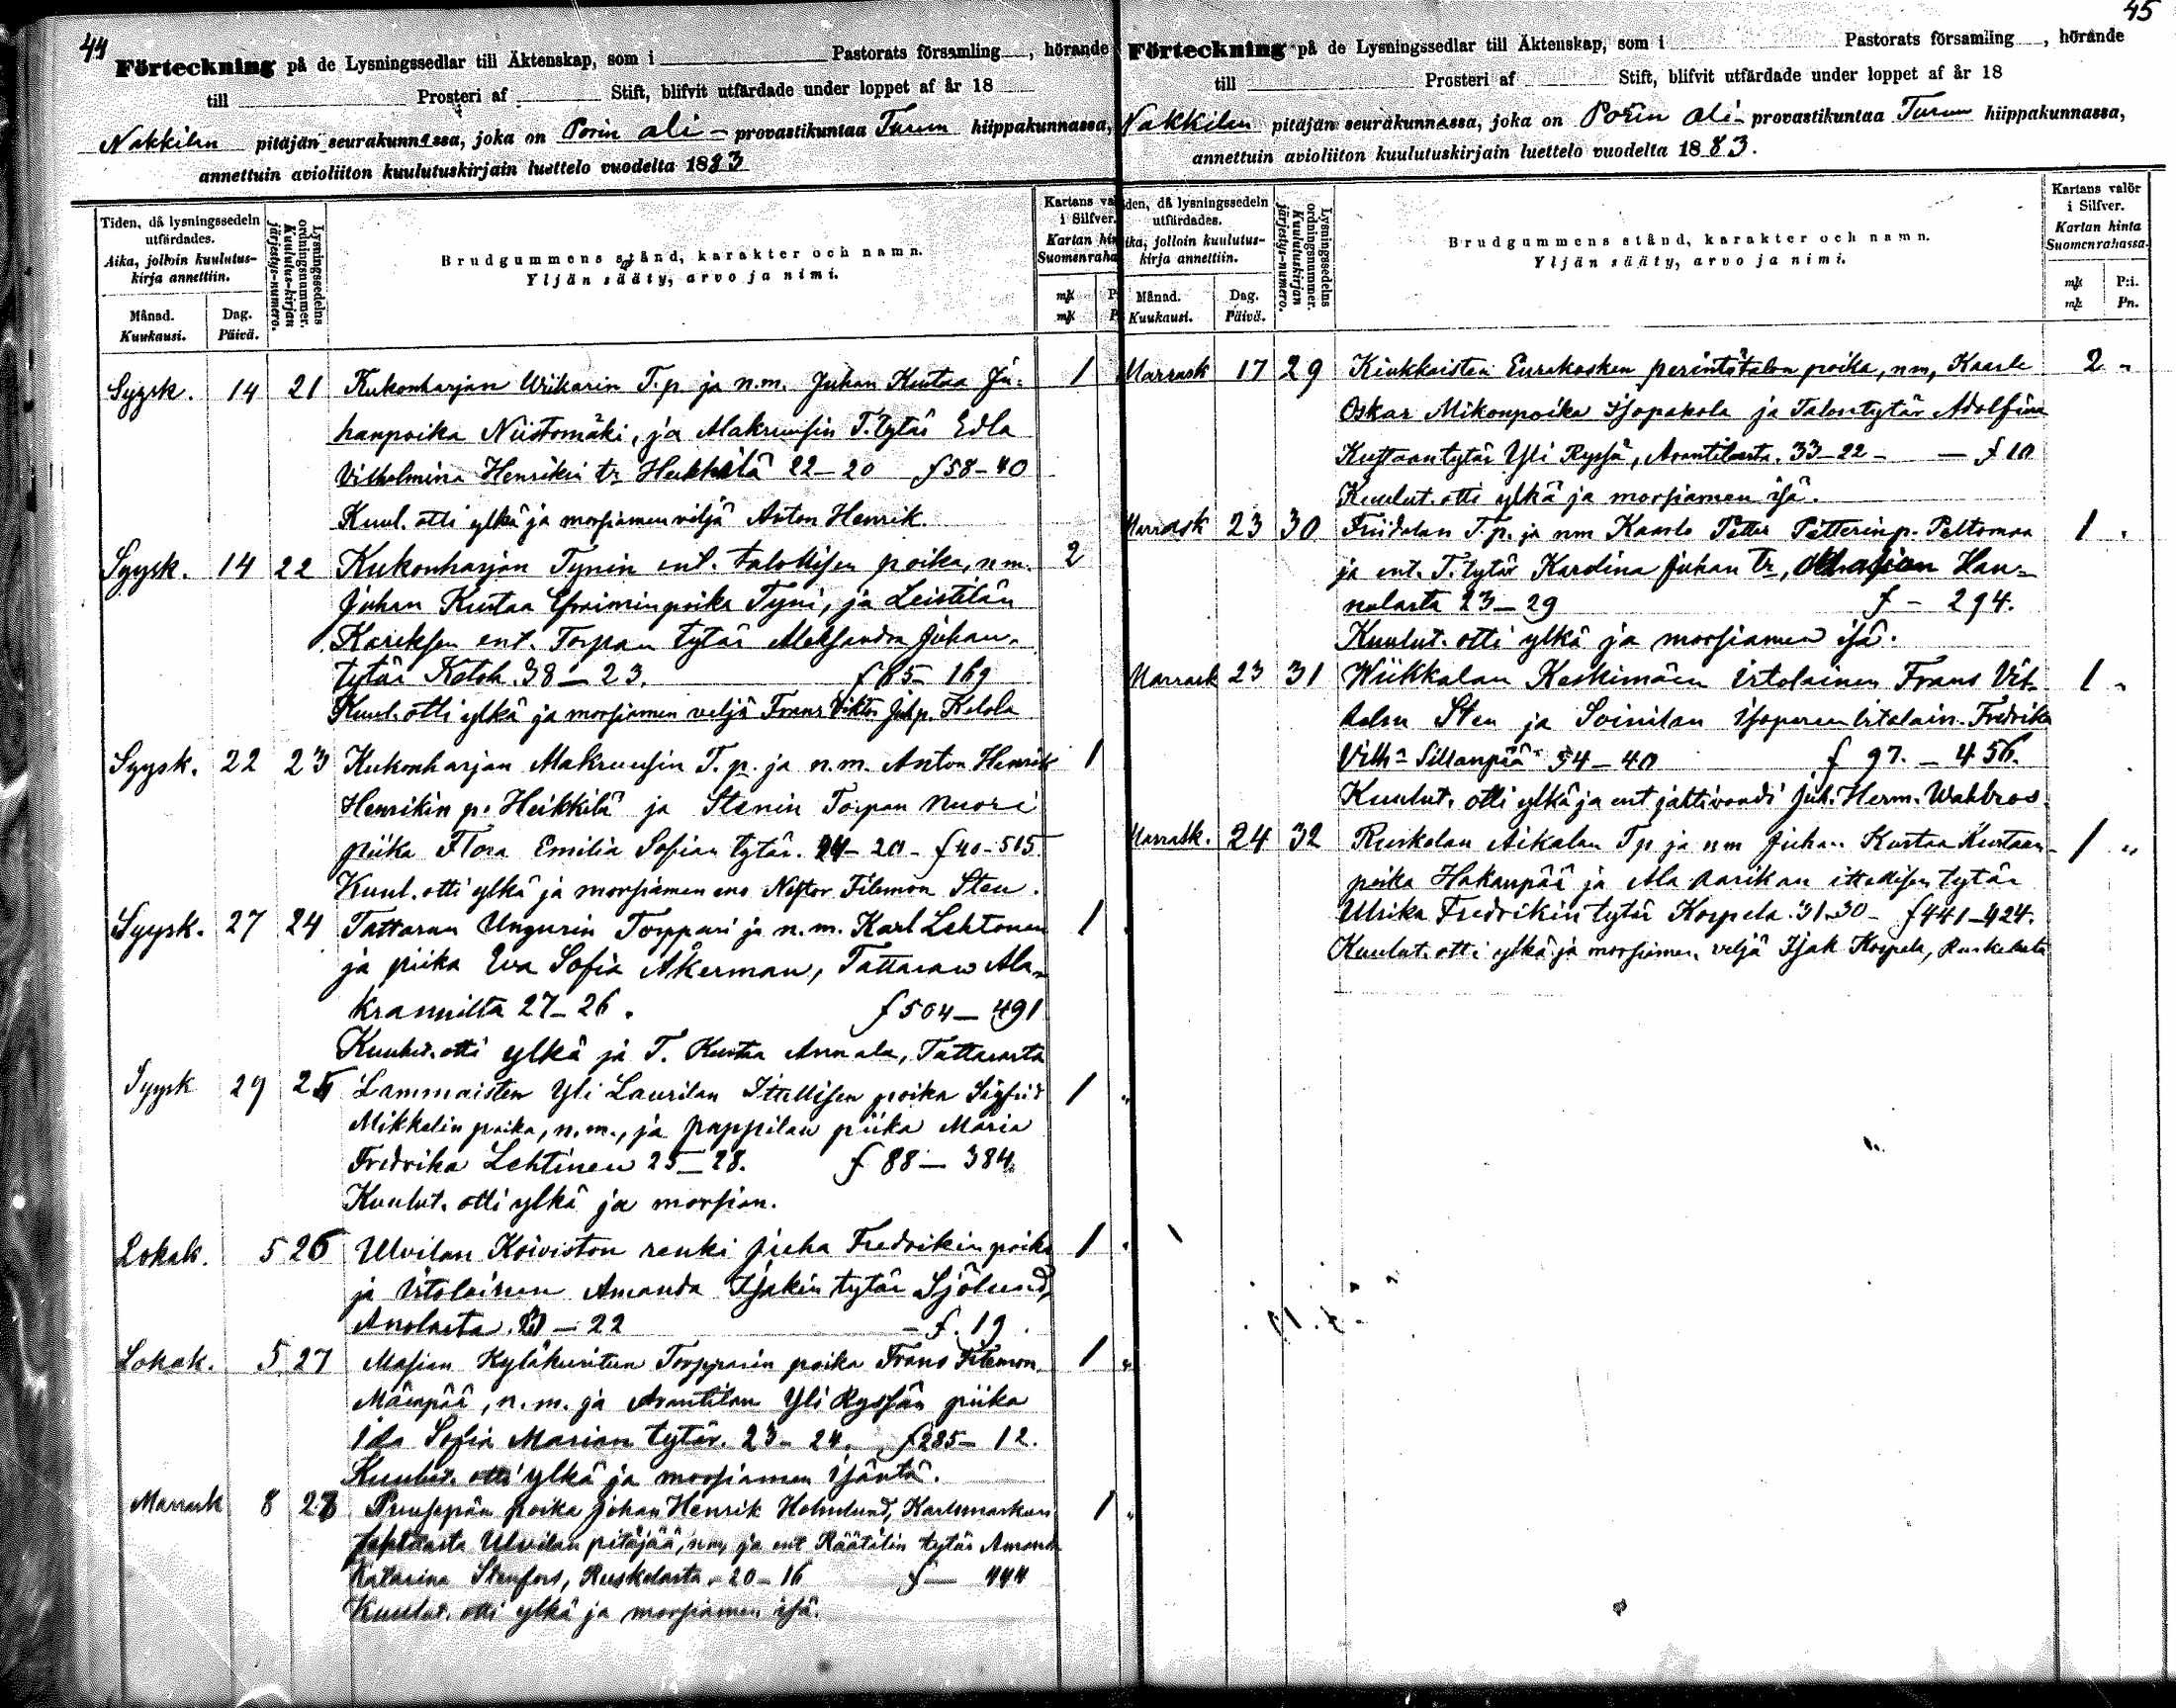 44
Förteckning på de Lysningssedlar till Äktenskap, som i Pastorats församling, hörande
till Prosteri af Stift, blifvit utfärdade under loppet af år 18
Nakkilan pitäjän seurakunnassa, joka on Porin ali- provastikuntaa Turun hiippakunnassa,
annettuin avioliiton kuulutuskirjain luettelo vuodelta 1883
Tiden, då lysningssedeln utfärdades.
Aika, jolloin kuulutuskirja annettiin.
Månad. Kuukausi.
Dag. Päivä.
Lysningssedelns ordningsnummer.
Kuulutus-kirjan järjestys-numero.
Brudgummens stånd, karakter och namn.
Yljän sääty, arvo ja nimi.
Kartans va
i Silfver.
Kartan hin
Suomenraha
mk P
mk P
Syysk. 14 21 Kukonharjan Wiikarin T.p. ja n.m. Juhan Kustaa Ju- 1
hanpoika Niistomäki, ja Makruusin T. tytär Edla
Vilhelmina Henrikin tr Heikkilä 22–20 f 58–40
Kuul. otti ylkä ja morsiamen veljä Anton Henrik.
Syysk. 14 22 Kukonharjan Tynin ent. talollisen poika, n.m. 2
Juhan Kustaa Efraiminpoika Tyni, ja Leistilän
Kareksen ent. Torpan tytär Aleksandra Juhan-
tytär Ketola. 38–23. f 85–169
Kuul. otti ylkä ja morsiamen veljä Frans Viktor Juh.p. Ketola
Syysk. 22 23 Kukonharjan Makruusin T.p. ja n.m. Anton Henrik 1
Henrikin p. Heikkilä ja Stenin Torpan nuori
piika Flora Emilia Sofian tytär. 24–20– f 40–515.
Kuul. otti ylkä ja morsiamen eno Nestor Filemon Sten.
Syysk. 27 24 Tattaran Ungurin Torppari ja n.m. Karl Lehtonen 1
ja piika Eva Sofia Åkerman, Tattaran Ala-
krannilta 27–26. f 504–491
Kuulut. otti ylkä ja T. Kustaa Annala, Tattarasta
Syysk 29 25 Lammaisten Yli Laurilan Itsellisen poika Sigfrid 1 "
Mikkelin poika, n.m., ja pappilan piika Maria
Fredrika Lehtinen 25–28. f 88–384.
Kuulut. otti ylkä ja morsian.
Lokak. 5 26 Ulvilan Koiviston renki Juha Fredrikin poika 1 "
ja irtolainen Amanda Isakin tytär Sjölund,
Anolasta. –22 – f. 19.
Lokak. 5 27 Masian Kyläkuritun Torpparin poika Frans Filemon 1 "
Mäenpää, n.m. ja Arantilan Yli Ryssän piika
Ida Sofia Marian tytär. 23–24. f 285–12.
Kuulut. otti ylkä ja morsiamen isäntä.
Marrask 8 28 Puusepän poika Johan Henrik Holmlund, Karlsmarkun 1 "
Ulvilan pitäjää, n.m, ja ent Räätälin tytär Amanda
Katarina Stenfors, Ruskelasta. 20–16 f – 444
Kuulut. otti ylkä ja morsiamen isä.
45
Förteckning på de Lysningssedlar till Äktenskap, som i Pastorats församling, hörande
till Prosteri af Stift, blifvit utfärdade under loppet af år 18
Nakkilan pitäjän seurakunnassa, joka on Porin ali- provastikuntaa Turun hiippakunnassa,
annettuin avioliiton kuulutuskirjain luettelo vuodelta 1883.
iden, då lysningssedeln utfärdades.
ika, jolloin kuulutuskirja annettiin.
Månad. Kuukausi.
Dag. Päivä.
Lysningssedelns ordningsnummer.
Kuulutuskirjan järjestys-numero.
Brudgummens stånd, karakter och namn.
Yljän sääty, arvo ja nimi.
Kartans valör
i Silfver.
Kartan hinta
Suomenrahassa.
mk P:i.
mk Pn.
Marrask 17 29 Kiukkaisten Eurakosken perintötalon poika, nm, Kaarle 2 "
Oskar Mikonpoika Isopakola ja Talontytär Adolfina
Kustaantytär Yli Ryssä, Arantilasta. 33–22– – f 10
Kuulut. otti ylkä ja morsiamen isä.
Marrask 23 30 Friidalan T.p. ja nm Kaarlo Petter Petterinp. Peltomaa 1 "
ja ent. T. tytär Karolina Juhan tr, Han-
nulasta 23–29 f – 294.
Kuulut. otti ylkä ja morsiamen isä.
Marrask 23 31 Wiikkalan Keskimäen irtolainen Frans Vil- 1 "
helm Sten ja Soinilan Isoperen irtolain. Fredrika
Vilh:a Sillanpää 54–40 f 97. – 456.
Kuulut. otti ylkä ja ent jahtivouti Juh. Herm. Wahlroos.
Marrask. 24 32 Ruskelan Aikalan Tp ja nm Juhan Kustaa Kustaan- 1 "
poika Hakanpää ja Ala Aarikan itsellisen tytär
Ulrika Fredrikin tytär Korpela. 31–30– f 441–424.
Kuulut. otti ylkä ja morsiamen veljä Isak Korpela, Ruskelasta